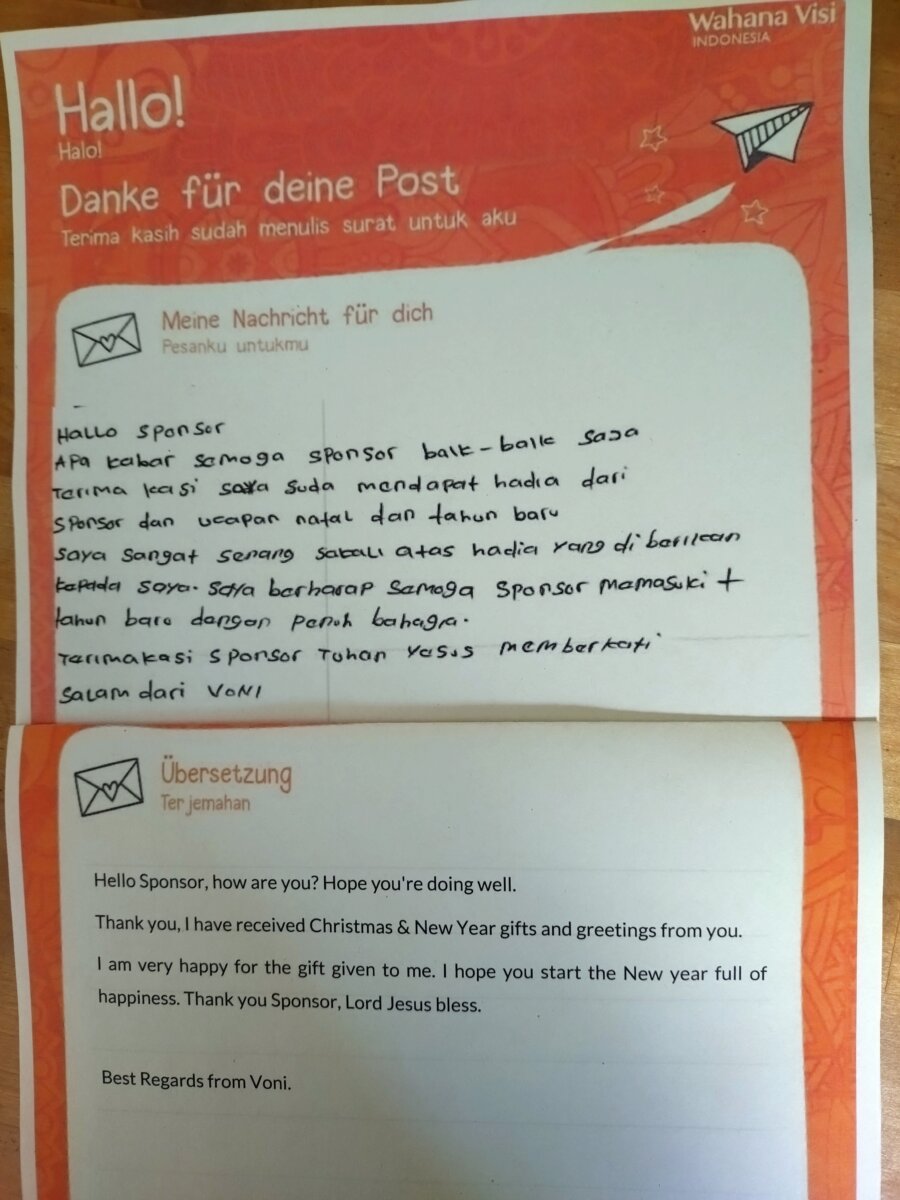 Wahana Visi
INDONESIA
Hallo!
Halo!
Danke für deine Post
Terima kasih sudah menulis surat untuk aku
Meine Nachricht für dich
Pesanku untukmu
Hallo sponsor
Apa kabar semoga sponsor baik-baik saja
Terima kasi saya suda mendapat hadia dari
sponsor dan ucapan natal dan tahun baru
saya sangat senang sakali atas hadia yang di berikan
kepada saya. saya berharap semoga sponsor memasuki +
tahun baru dengan penuh bahagia.
Terimakasi sponsor Tuhan Yesus memberkati
Salam dari VONI
Übersetzung
Terjemahan
Hello Sponsor, how are you? Hope you're doing well.
Thank you, I have received Christmas & New Year gifts and greetings from you.
I am very happy for the gift given to me. I hope you start the New year full of
happiness. Thank you Sponsor, Lord Jesus bless.
Best Regards from Voni.